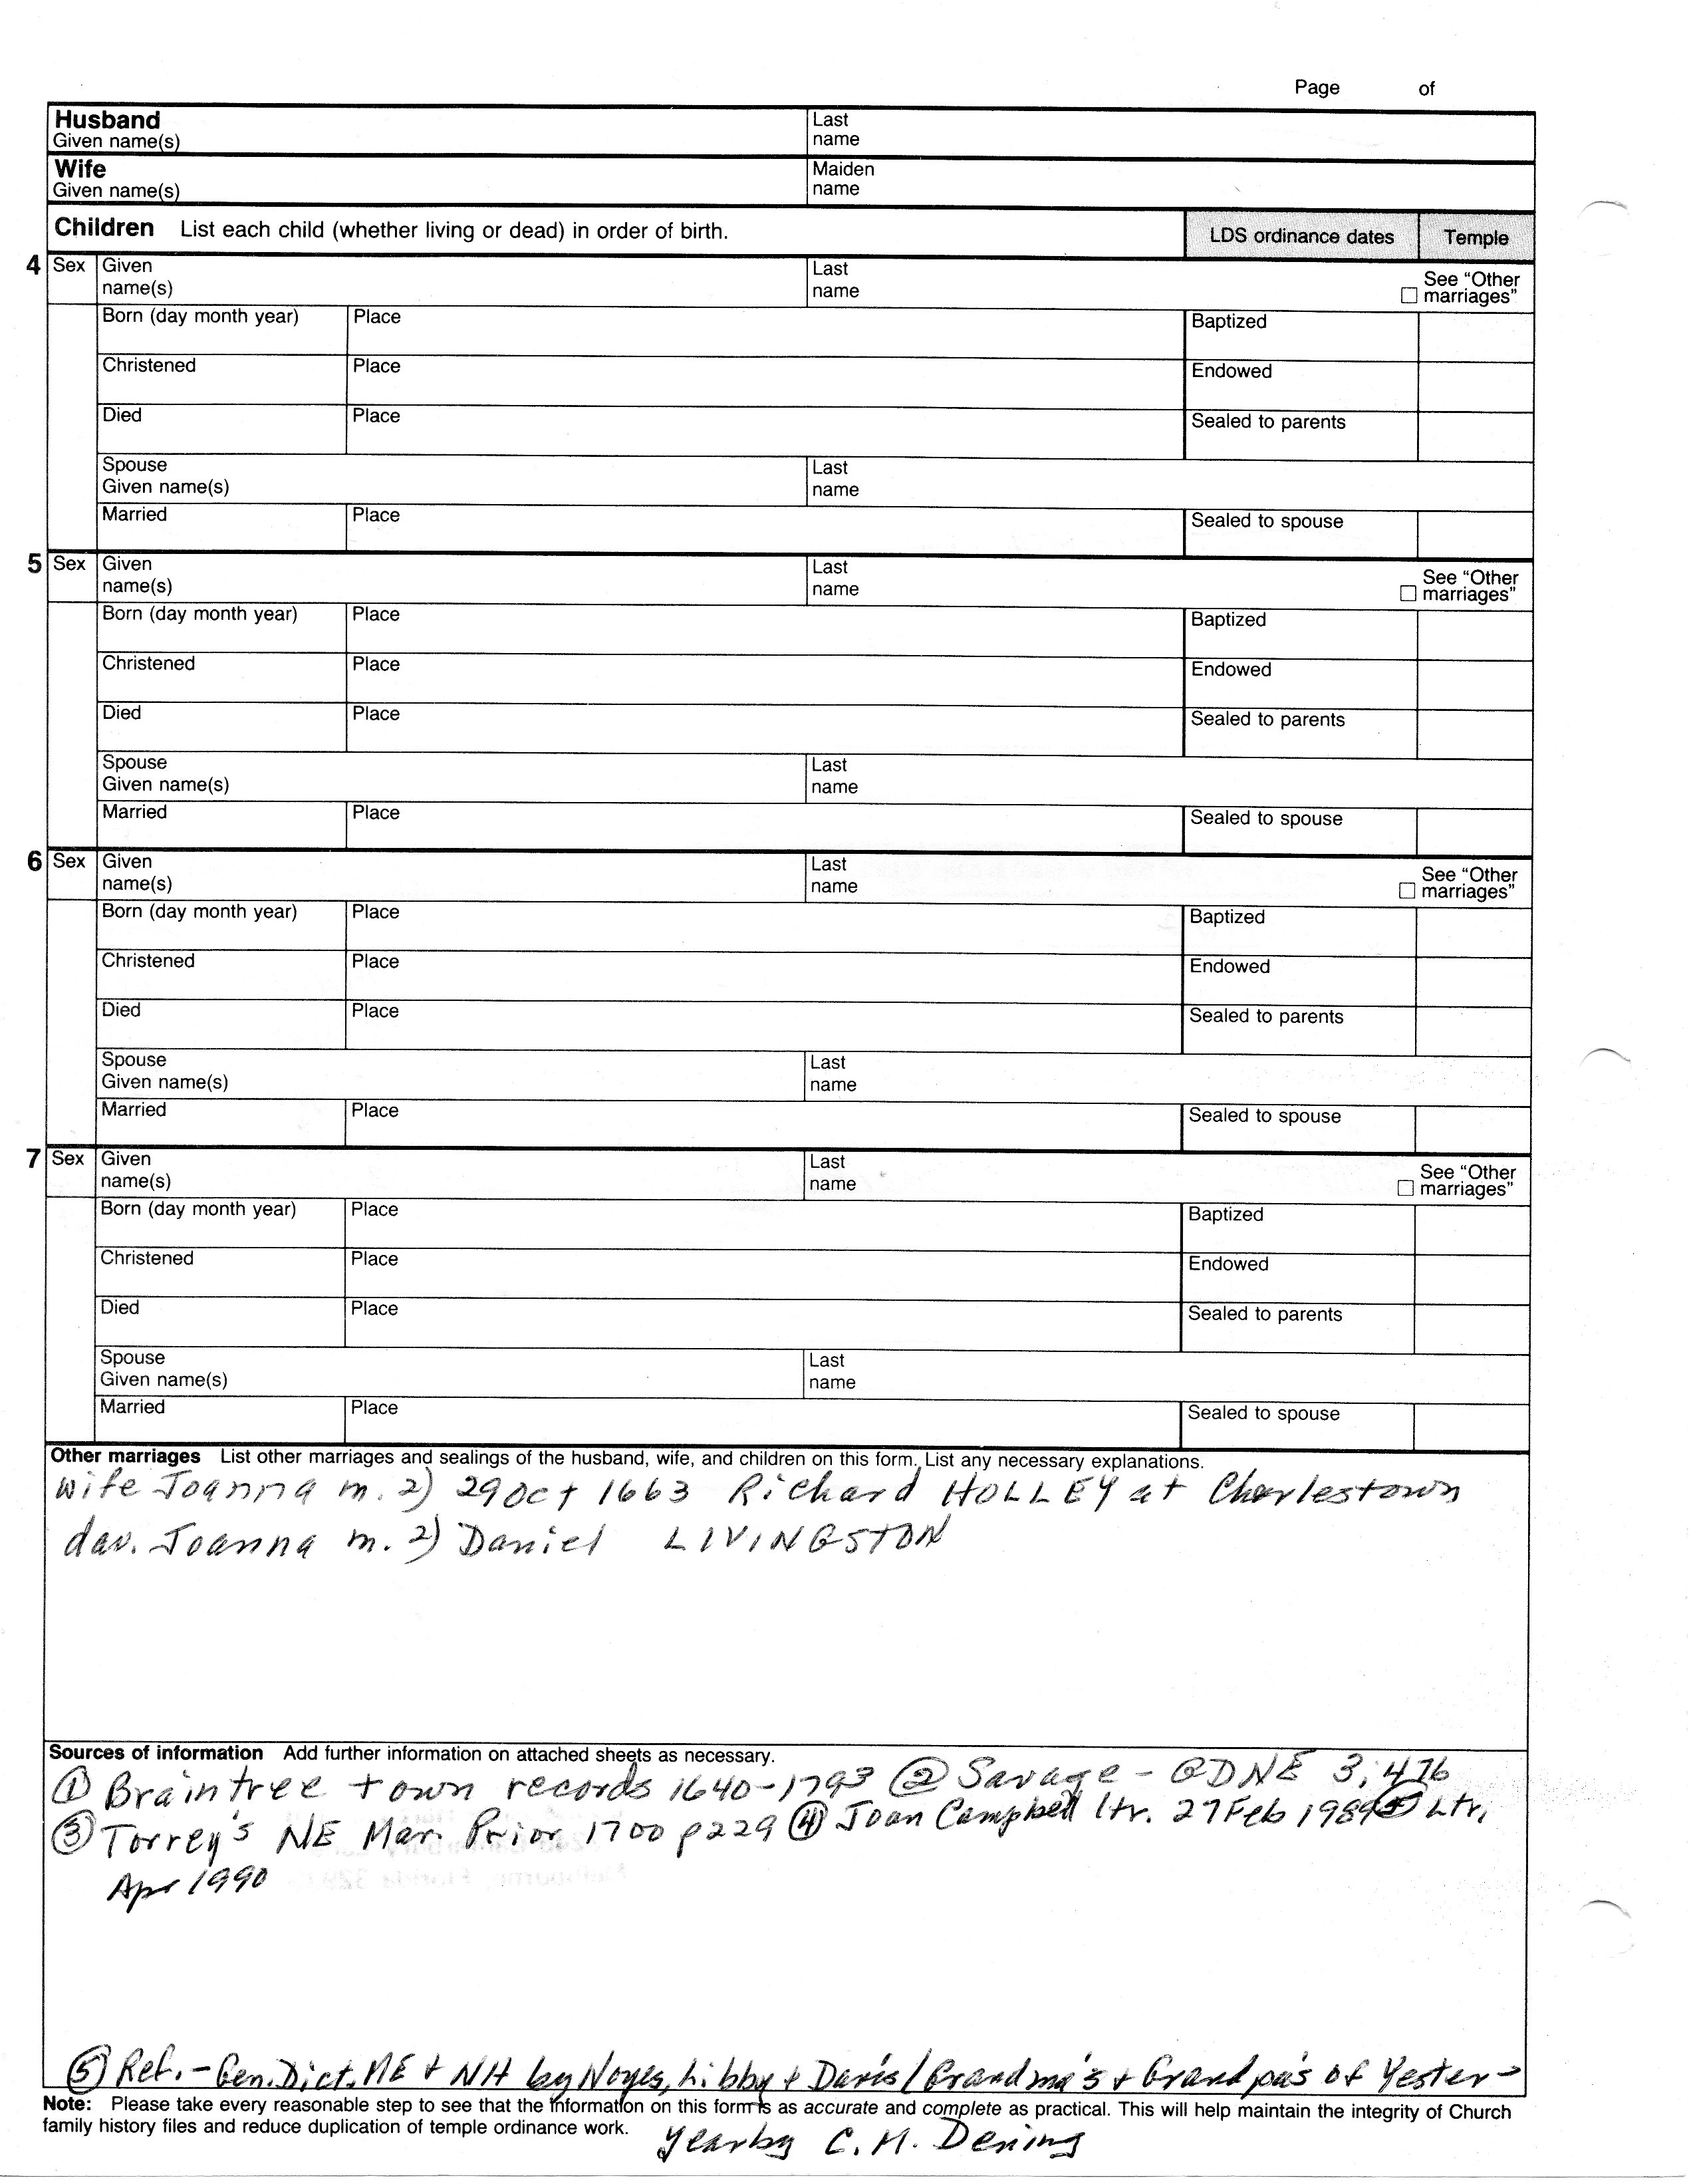 Page of
Husband
Given name(s)
Last
name
Wife
Given name(s)
Maiden
name
Children List each child (whether living or dead) in order of birth.
LDS ordinance dates Temple
4 Sex Given
name(s)
Last
name
See “Other
marriages”
Born (day month year) Place Baptized
Christened Place Endowed
Died Place Sealed to parents
Spouse
Given name(s)
Last
name
Married Place Sealed to spouse
5 Sex Given
name(s)
Last
name
See “Other
marriages”
Born (day month year) Place Baptized
Christened Place Endowed
Died Place Sealed to parents
Spouse
Given name(s)
Last
name
Married Place Sealed to spouse
6 Sex Given
name(s)
Last
name
See “Other
marriages”
Born (day month year) Place Baptized
Christened Place Endowed
Died Place Sealed to parents
Spouse
Given name(s)
Last
name
Married Place Sealed to spouse
7 Sex Given
name(s)
Last
name
See “Other
marriages”
Born (day month year) Place Baptized
Christened Place Endowed
Died Place Sealed to parents
Spouse
Given name(s)
Last
name
Married Place Sealed to spouse
Other marriages List other marriages and sealings of the husband, wife, and children on this form. List any necessary explanations.
Wife Joanna m. 2) 29 Oct 1663 Richard HOLLEY at Charlestown
dau. Joanna m. 2) Daniel LIVINGSTON
Sources of information Add further information on attached sheets as necessary.
① Braintree town records 1640-1793 ② Savage - GDNE 3:476
③ Torrey's NE Mar. Prior 1700 p229 ④ Joan Campbell ltr. 27 Feb 1989 ⑤ Ltr.
Apr 1990
⑤ Ref. - Gen. Dict. ME + NH by Noyes, Libby + Davis / Grandma's + Grandpa's of Yester-
Note: Please take every reasonable step to see that the information on this form is as accurate and complete as practical. This will help maintain the integrity of Church
family history files and reduce duplication of temple ordinance work.
year by C. M. Dening